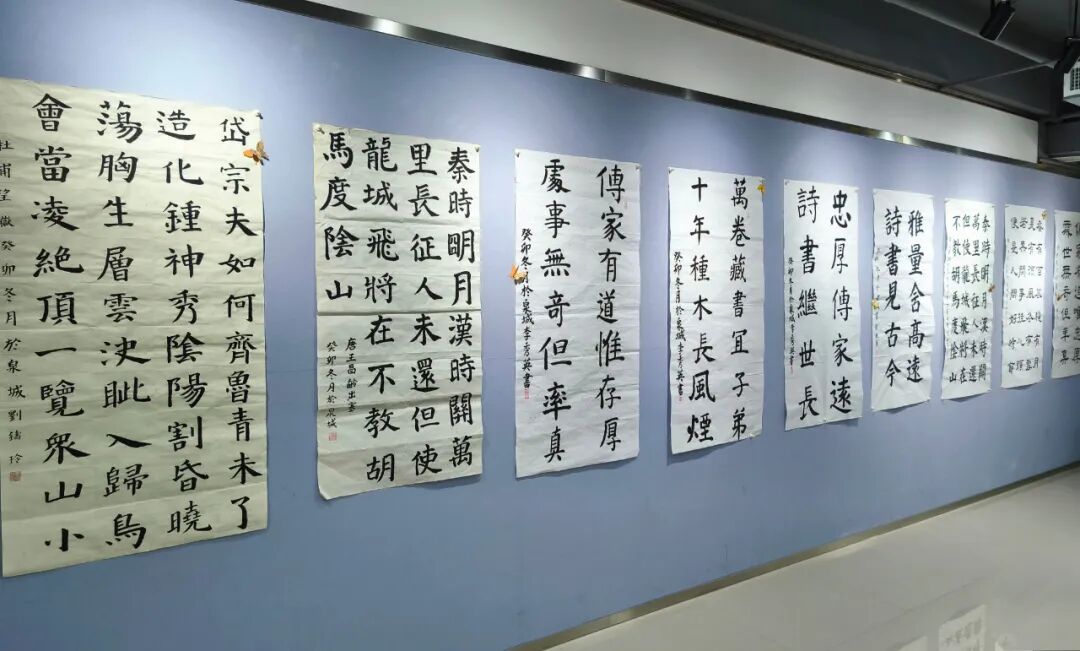 岱宗夫如何齊魯青未了
造化鍾神秀陰陽割昏曉
蕩胸生層雲決眦入歸鳥
會當凌絕頂一覽衆山小
杜甫望嶽癸卯冬月於泉城劉玲
秦時明月漢時關萬
里長征人未還但使
龍城飛將在不教胡
馬度陰山
唐王昌齡出塞
癸卯冬月於泉城
傳家有道惟存厚
處事無奇但率真
癸卯冬月於泉城李秀英書
萬卷藏書宜子弟
十年種木長風煙
癸卯冬月於泉城李秀英書
忠厚傳家遠
詩書繼世長
癸卯冬月於泉城李秀英書
雅量含高遠
詩書見古今
秦時明月漢時關
萬里長征人未還
但使龍城飛將在
不教胡馬度陰山